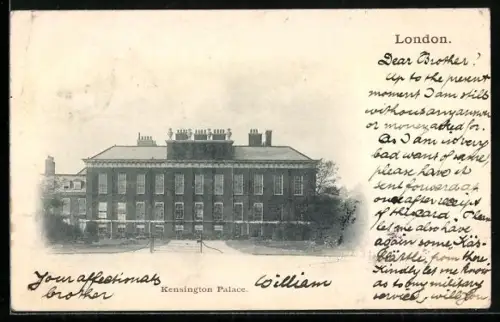 London.
Dear Brother!
Up to the present
moment I am still
without any answer
or money asked for.
As I am in very
bad want of same,
please have it
sent forward at
once after receipt
of this card. Please
let me also have
again some Käs-
blättle, from there.
Kindly let me know
as to buy military
service, will you
Your affectionate
brother
William
Kensington Palace.